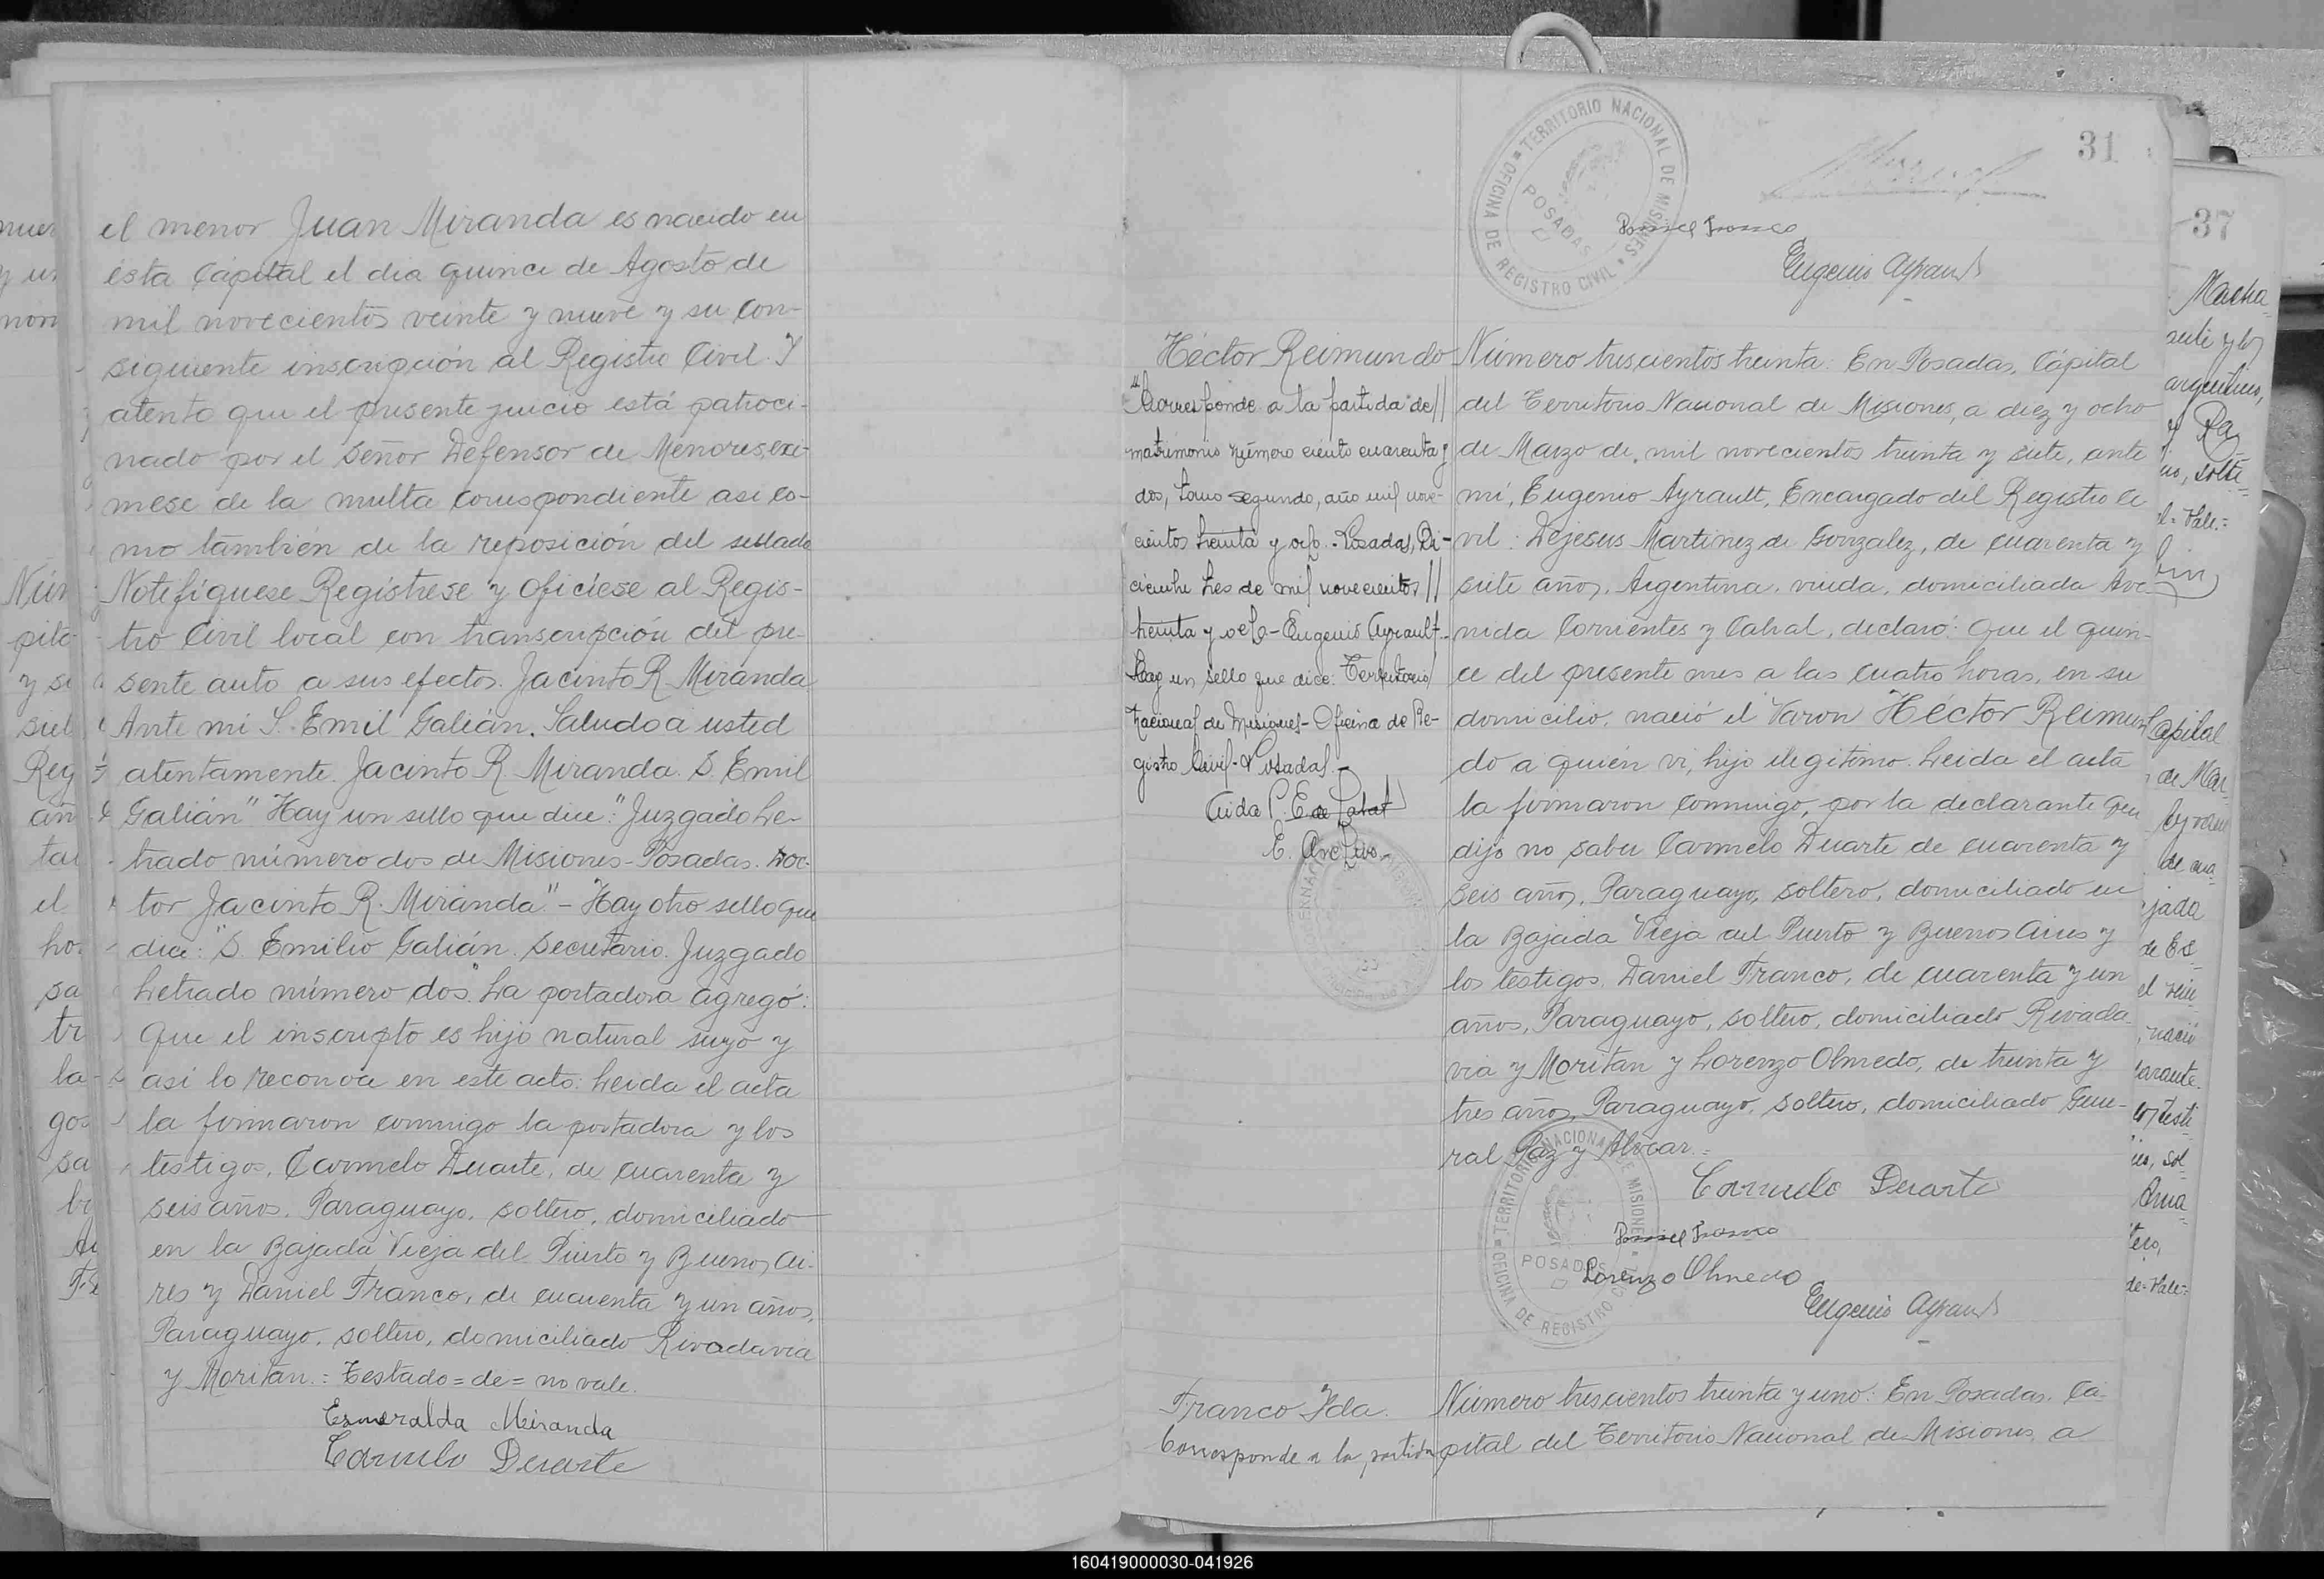 el menor Juan Miranda es nacido en
ésta Cápital el dia quince de Agosto de
mil novecientos veinte y nueve y su con-
siguiente inscripción al Registro Civil. Y
atento que el presente juicio está patroci-
nado por el Señor Defensor de Menores, exi-
mese de la multa correspondiente asi co-
mo también de la reposición del sellado
Notifíquese Regístrese y Ofíciese al Regis-
tro Civil local con transcripción del pre-
sente auto a sus efectos. Jacinto R. Miranda
Ante mi S. Emil Galián. Saludo a usted
atentamente. Jacinto R. Miranda. S. Emil
Galián" Hay un sello que dice: "Juzgado Le-
trado número dos de Misiones-Posadas. Doc-
tor Jacinto R. Miranda" - Hay otro sello que
dice: "S. Emilio Galián. Secretario. Juzgado
Letrado número dos". La portadora agregó:
Que el inscripto es hijo natural suyo y
asi lo reconoce en este acto: Leida el acta
la firmaron conmigo la portadora y los
testigos, Carmelo Duarte, de cuarenta y
seis años, Paraguayo, soltero, domiciliado
en la Bajada Vieja del Puerto y Buenos Ai-
res y Daniel Franco, de cuarenta y un años,
Paraguayo, soltero, domiciliado Rivadavia
y Moritan.= Testado=de= no vale.
Esmeralda Miranda
Carmelo Duarte
31
TERRITORIO NACIONAL DE MISIONES
OFICINA DE REGISTRO CIVIL
POSADAS
Daniel Franco
Eugenio Ayrault
Héctor Reimundo
"Corresponde a la partida de//
matrimonio número ciento cuarenta y
dos, tomo segundo, año mil nove-
cientos treinta y ocho. Posadas, Di-
ciembre tres de mil novecientos //
treinta y ocho - Eugenio Ayrault -
Hay un sello que dice: Territorio
Nacional de Misiones - Oficina de Re-
gistro Civil - Posadas. -
Número trescientos treinta: En Posadas, Cápital
del Territorio Nacional de Misiones, a diez y ocho
de Marzo de mil novecientos treinta y siete, ante
mí, Eugenio Ayrault, Encargado del Registro Ci
vil: Dejesus Martinez de Gonzalez, de cuarenta y
siete años, Argentina, viuda, domiciliada Ave-
nida Corrientes y Cabral, declaró: Que el quin-
ce del presente mes a las cuatro horas, en su
domicilio, nació el Varon Héctor Reimun
do a quién vi, hijo ilegitimo. Leida el acta
la firmaron conmigo, por la declarante que
dijo no saber Carmelo Duarte de cuarenta y
seis años, Paraguayo, soltero, domiciliado en
la Bajada Vieja del Puerto y Buenos Aires y
los testigos, Daniel Franco, de cuarenta y un
años, Paraguayo, soltero, domiciliado Rivada
via y Moritan y Lorenzo Olmedo, de treinta y
tres años, Paraguayo, soltero, domiciliado Gene-
ral Paz y Alvear.=
Carmelo Duarte
Daniel Franco
Lorenzo Olmedo
Eugenio Ayrault
TERRITORIO NACIONAL DE MISIONES
OFICINA DE REGISTRO CIVIL
POSADAS
Franco Ida.
Corresponde a la partida
Número trescientos treinta y uno: En Posadas, Cá-
pital del Territorio Nacional de Misiones, a
37
160419000030-041926